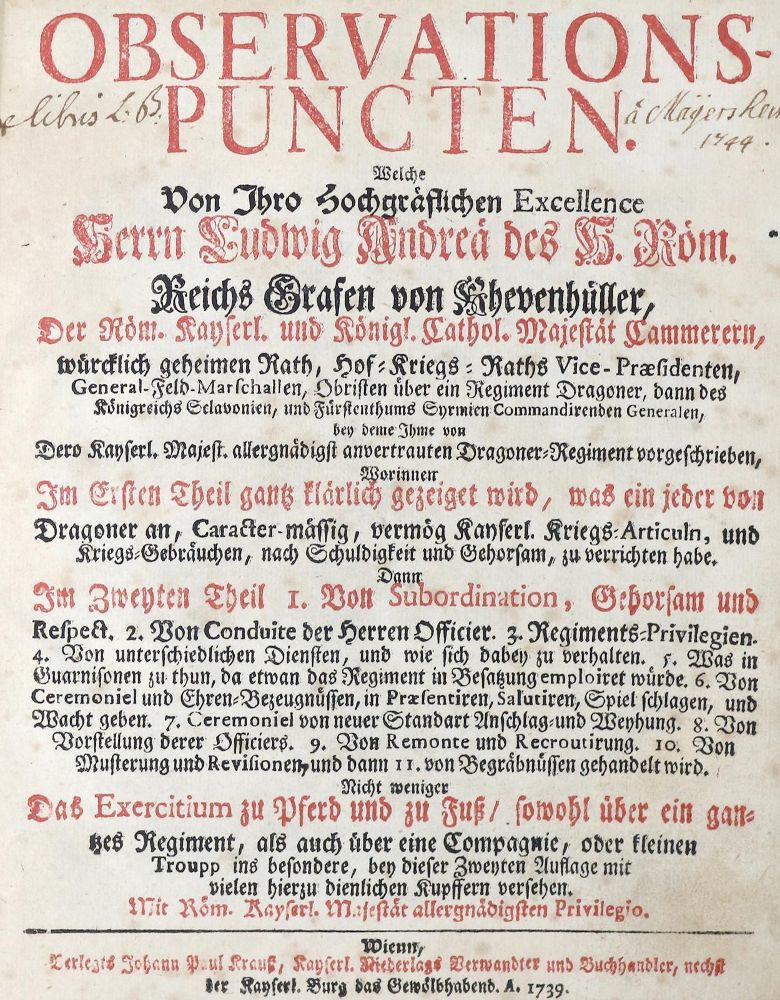 OBSERVATIONS-
PUNCTEN.
libris L. B.
â Maÿersheim
1744.
Welche
Von Ihro Hochgräflichen Excellence
Herrn Ludwig Andreä des H. Röm.
Reichs Grafen von Khevenhüller,
Der Röm. Kayserl. und Königl. Cathol. Majestät Cammerern,
würcklich geheimen Rath, Hof-Kriegs-Raths Vice-Præsidenten,
General-Feld-Marschallen, Obristen über ein Regiment Dragoner, dann des
Königreichs Sclavonien, und Fürstenthums Syrmien Commandirenden Generalen,
bey deme Ihme von
Dero Kayserl. Majest. allergnädigst anvertrauten Dragoner-Regiment vorgeschrieben,
Worinnen
Im Ersten Theil gantz klärlich gezeiget wird, was ein jeder von
Dragoner an, Caracter-mässig, vermög Kayserl. Kriegs-Articuln, und
Kriegs-Gebräuchen, nach Schuldigkeit und Gehorsam, zu verrichten habe.
Dann
Im Zweyten Theil 1. Von Subordination, Gehorsam und
Respect. 2. Von Conduite der Herren Officier. 3. Regiments-Privilegien.
4. Von unterschiedlichen Diensten, und wie sich dabey zu verhalten. 5. Was in
Guarnisonen zu thun, da etwan das Regiment in Besatzung emploiret würde. 6. Von
Ceremoniel und Ehren-Bezeugnüssen, in Præsentiren, Salutiren, Spiel schlagen, und
Wacht geben. 7. Ceremoniel von neuer Standart Anschlag-und Weyhung. 8. Von
Vorstellung derer Officiers. 9. Von Remonte und Recroutirung. 10. Von
Musterung und Revisionen, und dann 11. von Begräbnüssen gehandelt wird.
Nicht weniger
Das Exercitium zu Pferd und zu Fuß/ sowohl über ein gan-
tzes Regiment, als auch über eine Compagnie, oder kleinen
Troupp ins besondere, bey dieser Zweyten Auflage mit
vielen hierzu dienlichen Kupffern versehen.
Mit Röm. Kayserl. Majestät allergnädigsten Privilegio.
Wienn,
Verlegts Johann Paul Krauß, Kayserl. Niederlags Verwandter und Buchhandler, nechst
der Kayserl. Burg das Gewölbhabend. A. 1739.